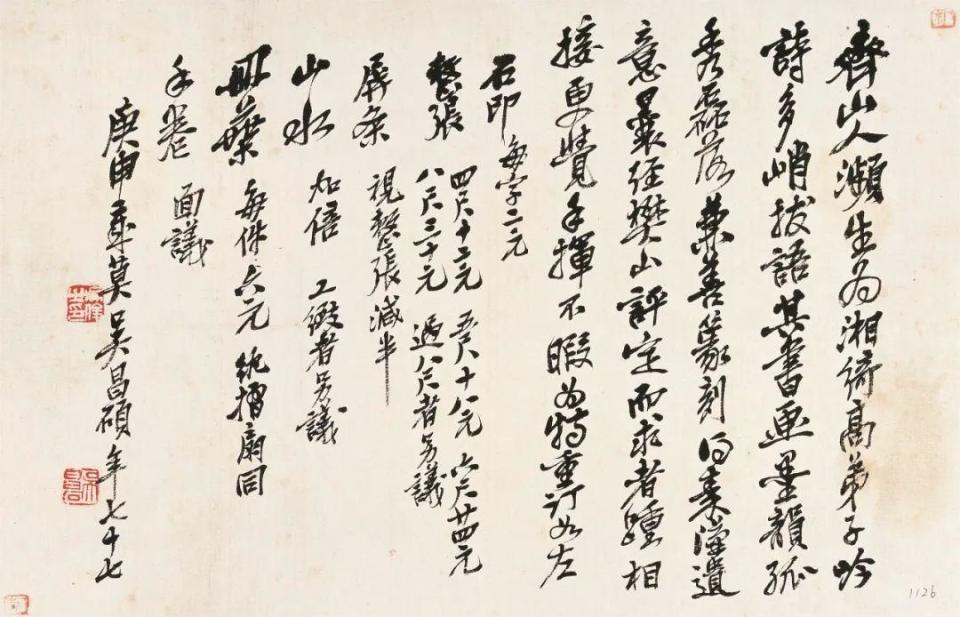 齊山人瀕生為湘綺高弟子吟
詩多峭拔語其書畫墨韻孤
秀磊落兼善篆刻得秦漢遺
意曩經樊山評定而求者踵相
接更覺手揮不暇為特重訂如左
石印 每字二元
整張 四尺十二元 五尺十八元 六尺廿四元
八尺三十元 過八尺者另議
屏條 視整張減半
山水 加倍 工緻者另議
冊葉 每件六元 紈摺扇同
手卷 面議
庚申歲莫吳昌碩年七十七
1126